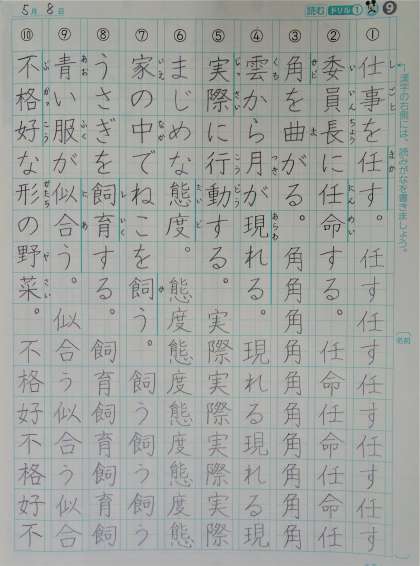 5月8日
読む ドリル① ⑨
漢字の右側には、読みがなを書きましょう。
名前
しごと まか
① 仕事を任す。任す任す任す任す任す
にんめい
② 委員長に任命する。任命任命任命任
かど ま
③ 角を曲がる。角角角角角角角角角角
くも あらわ
④ 雲から月が現れる。現れる現れる現
じっさい こうどう
⑤ 実際に行動する。実際実際実際実際
たいど
⑥ まじめな態度。態度態度態度態度態
いえ なか
⑦ 家の中でねこを飼う。飼う飼う飼う
しいく
⑧ うさぎを飼育する。飼育飼育飼育飼
あお ふく にあ
⑨ 青い服が似合う。似合う似合う似合
ぶかっこう やさい
⑩ 不格好な形の野菜。不格好不格好不